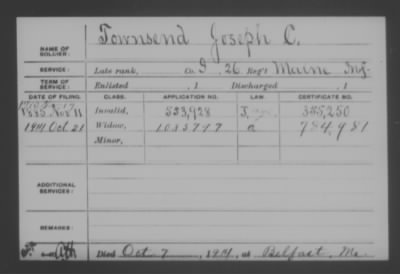 NAME OF SOLDIER: Townsend Joseph C.
SERVICE: Late rank, Co. I, 26 Reg't Maine Inf.
TERM OF SERVICE: Enlisted , 1 Discharged , 1
DATE OF FILING. CLASS. APPLICATION NO. LAW. CERTIFICATE NO.
Nov 11 Invalid, 553,928 355,250
1914 Oct 21 Widow, 1035747 784,981
Minor,
ADDITIONAL SERVICES:
REMARKS:
Died Oct 7, 1914, at Belfast, Me.